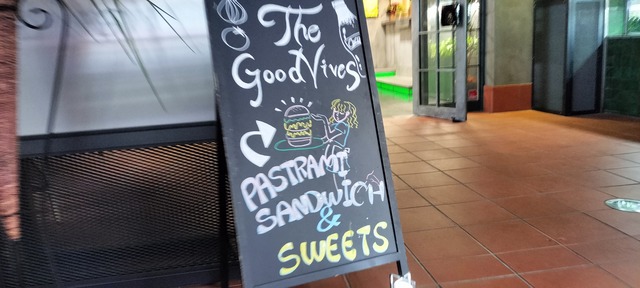 The
GoodVives
PASTRAMI
SANDWICH
&
SWEETS